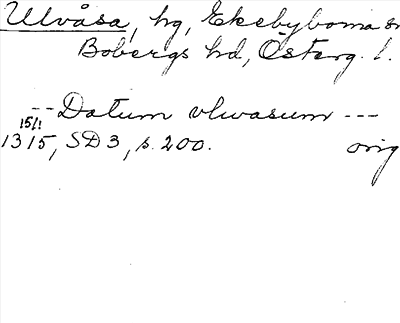 Ulvåsa, hg, Ekebyborna sn
Bobergs hd, Österg. l.
-- Datum vlwasum ---
15/1
1315, SD 3, s. 200. orig